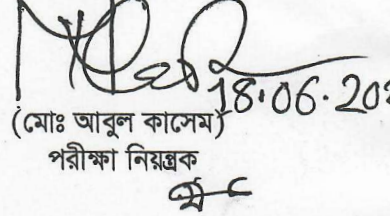 18.06.20
(মোঃ আবুল কাসেম)
পরীক্ষা নিয়ন্ত্রক